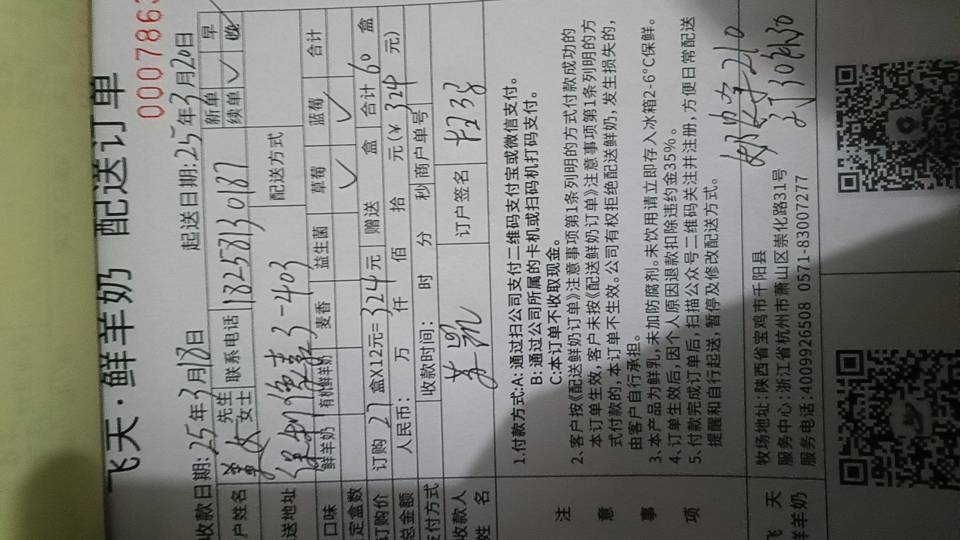 飞天·鲜羊奶 配送订单
000786
收款日期:25年3月18日 起送日期:25年3月20日
户姓名 女 先生 女士 联系电话 18258130187 新单 续单 ✓ 早 晚
送地址 3-403 配送方式
口味 鲜羊奶 有机鲜羊奶 麦香 益生菌 草莓 蓝莓 合计
定盒数 ✓ ✓
订购价 订购 27 盒X12元= 324 元 赠送 盒 合计 60 盒
总金额 人民币: 万 仟 佰 拾 元(¥ 324 元)
支付方式 收款时间: 时 分 秒 商户单号
收款人姓名 订户签名
注意事项
1.付款方式:A:通过扫公司支付二维码支付宝或微信支付。
B:通过公司所属的卡机或扫码机打码支付。
C:本订单不收取现金。
2、客户按《配送鲜奶订单》注意事项第1条列明的方式付款成功的
本订单生效,客户未按《配送鲜奶订单》注意事项第1条列明的方
式付款的,本订单不生效。公司有权拒绝配送鲜奶,发生损失的,
由客户自行承担。
3、本产品为鲜乳,未加防腐剂。未饮用请立即存入冰箱2-6°C保鲜。
4、订单生效后,因个人原因退款扣除违约金35%。
5、付款完成订单后,扫描公众号二维码关注并注册,方便日常配送
提醒和自行起送,暂停及修改配送方式。
飞天
羊羊奶
牧场地址:陕西省宝鸡市千阳县
服务中心:浙江省杭州市萧山区崇化路31号
服务电话:4009926508 0571-83007277